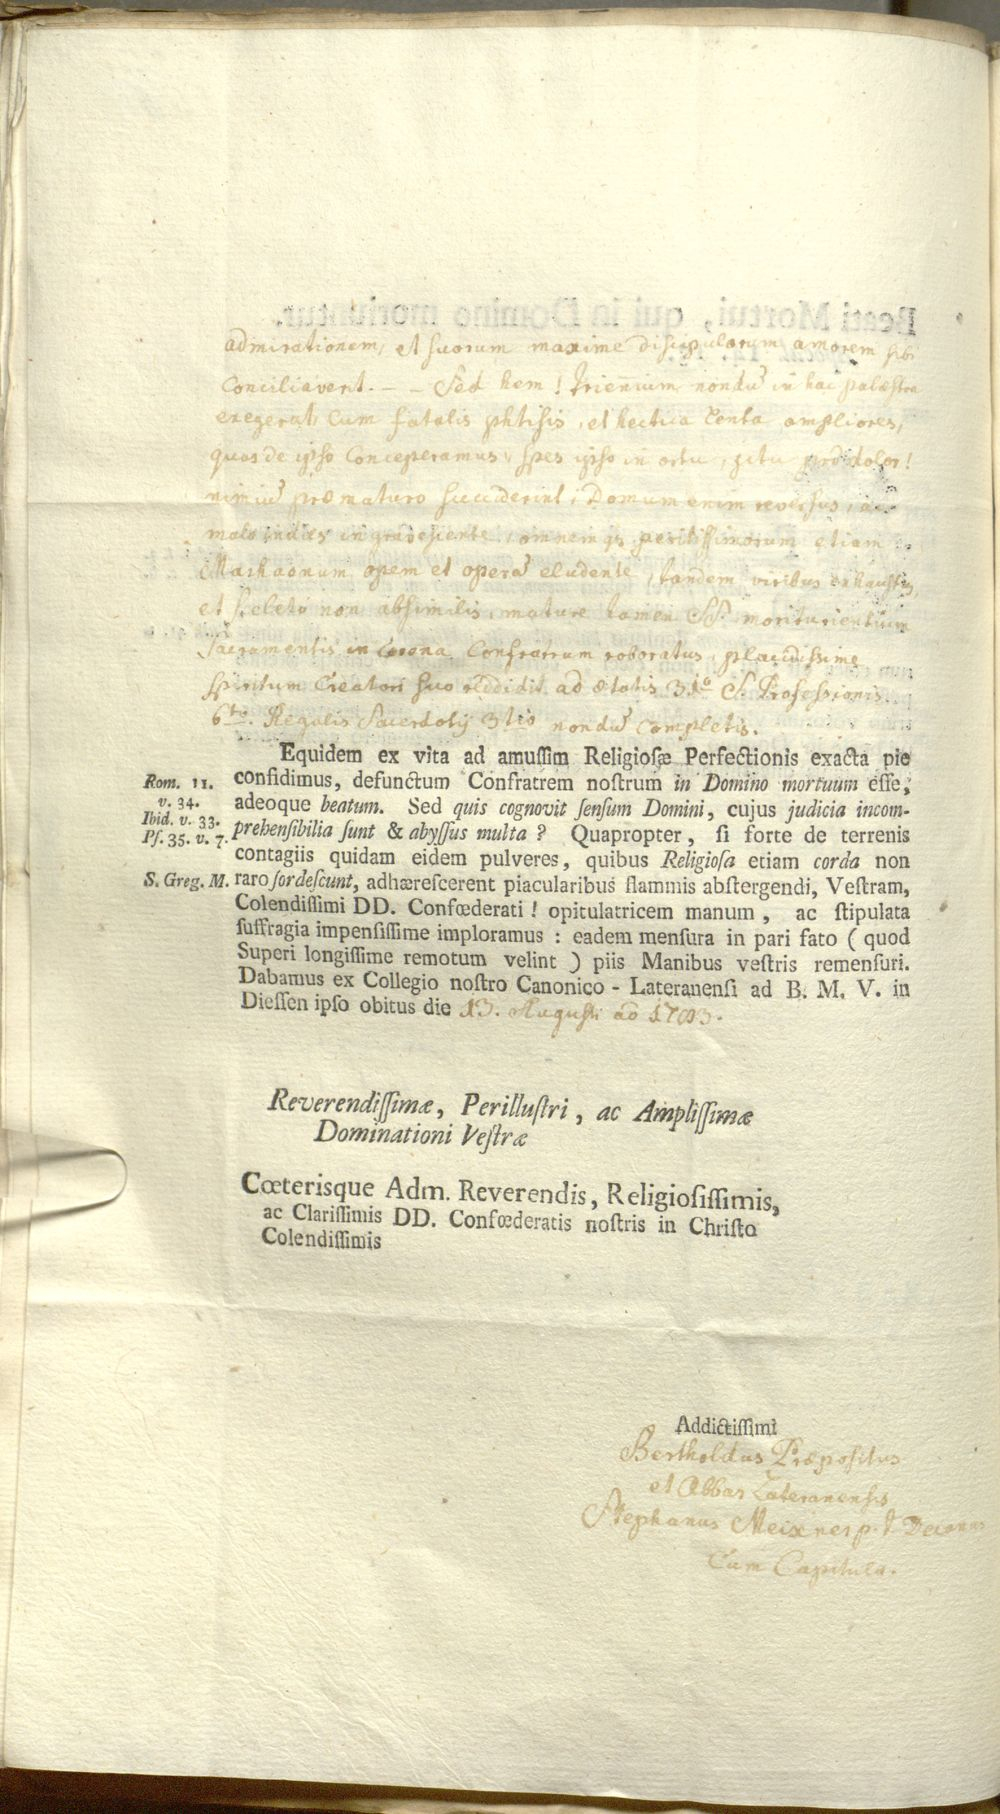 admirationem, et suorum maxime discipulorum amorem sibi
conciliaverit. – – Sed hem! trieñium nondū in hac palæstra
exegerat, cum fatalis phtisis, et hectica lenta ampliores,
quas de ipso conceperamus, spes ipso in ortu, situ proh dolor!
nimiū præmaturo succiderint; Domum enim reversus, a
malo indies ingravescente, omnemqs peritissimorum etiam
Machaonum opem et operā eludente, tandem viribus exhaustus,
et sceleto non absimilis, mature tamen SS. moriturientium
Sacramentis in corona Confratrum roboratus, placidissime
spiritum Creatori suo reddidit ad ætatis 31º S. Professionis
6tº. Regalis Sacerdotij 3tio nondū completis.
Equidem ex vita ad amuſſim Religioſæ Perfectionis exacta pie
Rom. 11. v. 34. confidimus, defunctum Confratrem noſtrum in Domino mortuum eſſe,
adeoque beatum. Sed quis cognovit ſenſum Domini, cujus judicia incom-
Ibid. v. 33. Pſ. 35. v. 7. prehenſibilia ſunt & abyſſus multa? Quapropter, ſi forte de terrenis
contagiis quidam eidem pulveres, quibus Religioſa etiam corda non
S. Greg. M. raro ſordeſcunt, adhæreſcerent piacularibus flammis abſtergendi, Veſtram,
Colendiſſimi DD. Confœderati! opitulatricem manum, ac ſtipulata
ſuffragia impenſiſſime imploramus: eadem menſura in pari fato (quod
Superi longiſſime remotum velint) piis Manibus veſtris remenſuri.
Dabamus ex Collegio noſtro Canonico - Lateranenſi ad B. M. V. in
Dieſſen ipſo obitus die 13. Augusti aō
Reverendiſſimæ, Perilluſtri, ac Ampliſſimæ
Dominationi Veſtræ
Cœterisque Adm. Reverendis, Religioſiſſimis,
ac Clariſſimis DD. Confœderatis noſtris in Chriſto
Colendiſſimis
Addictiſſimi
Bertholdus Præpositus
et Abbas Lateranensis
Stephanus Meixner p. t. Decanus
Cum Capitulo.